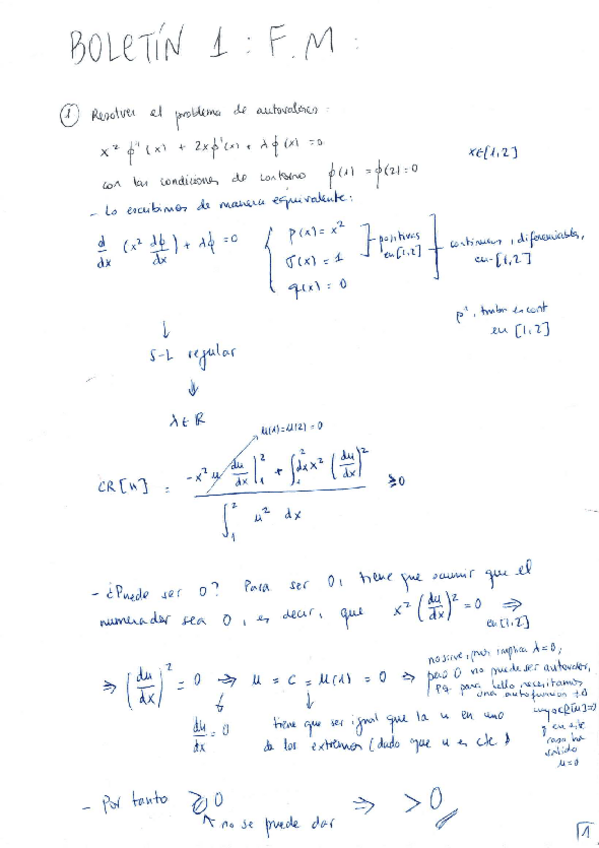 BOLETÍN 1 : F.M :
① Resolver el problema de autovalores:
x² φ''(x) + 2xφ'(x) + λφ(x) = 0 x∈[1,2]
con las condiciones de contorno φ(1) = φ(2) = 0
- Lo escribimos de manera equivalente:
d/dx (x² dφ/dx) + λφ = 0 { p(x) = x² σ(x) = 1 q(x) = 0 ] positivas en [1,2] ] continuas, diferenciables, en [1,2]
p', en [1,2]
↓
S-L regular
↓
λ∈ℝ
u(1)=u(2)=0
CR[u] = (-x² u du/dx |₁² + ∫₁² dx x² (du/dx)²) / (∫₁² u² dx) ≥0
- ¿Puede ser 0? Para ser 0, tiene que ocurrir que el
numerador sea 0, es decir, que x² (du/dx)² = 0 ⇒
en [1,2]
⇒ (du/dx)² = 0 ⇒ u = c = u(1) = 0 ⇒ no sirve, pues implica λ=0,
pero 0 no puede ser autovalor,
pq para ello necesitamos
una autofunción ≠0
cuyo CR[u]=0
y en este
caso ha
salido
u=0
↓ du/dx = 0
↓ tiene que ser igual que la u en uno
de los extremos (dado que u es cte.)
- Por tanto ≥0 ⇒ >0
↖ no se puede dar
1